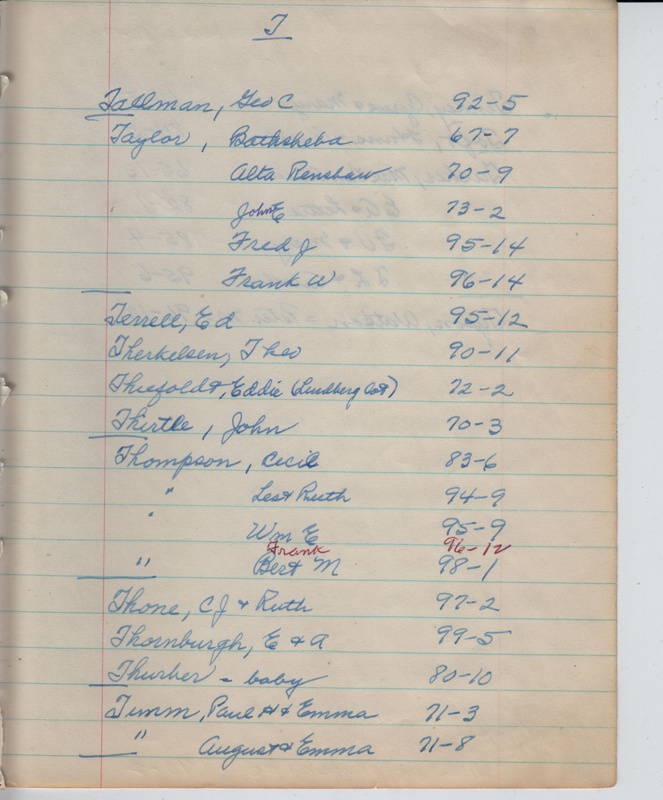 T
Tallman, Geo C 92-5
Taylor, Bathsheba 67-7
Alta Renshaw 70-9
John E 73-2
Fred J 95-14
Frank W 96-14
Terrell, Ed 95-12
Therkelsen, Theo 90-11
Thiefoldt, Eddie (Lindberg lot) 72-2
Thirtle, John 70-3
Thompson, Cecil 83-6
" Les & Ruth 94-9
" Wm E 95-9
Frank 96-12
" Bert M 98-1
Thone, CJ & Ruth 97-2
Thornburgh, E & A 99-5
Thurber - baby 80-10
Timm, Paul H & Emma 71-3
" August & Emma 71-8